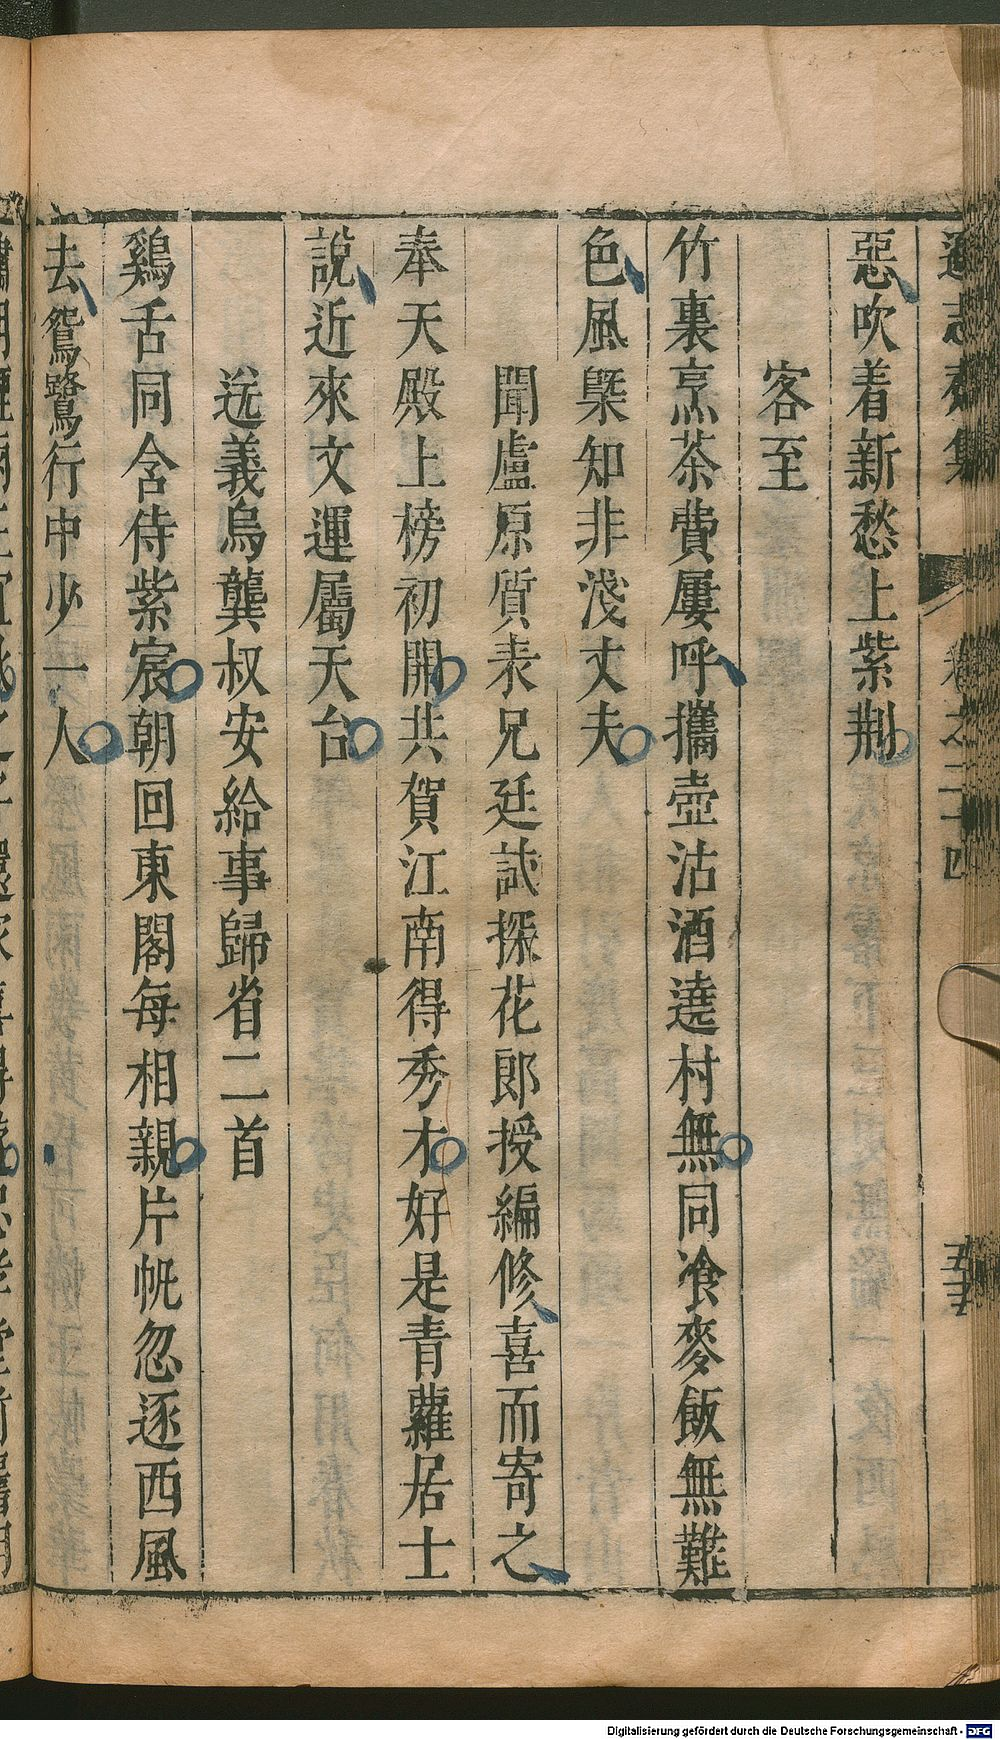 遜志齋集 卷之二十四 五十五
惡吹着新愁上紫荆
客至
竹裏烹茶費屢呼攜壺沽酒遶村無同飡麥飯無難
色風槩知非淺丈夫
聞盧原質表兄廷試探花郎授編修喜而寄之
奉天殿上榜初開共賀江南得秀才好是青蘿居士
說近來文運屬天台
送義烏龔叔安給事歸省二首
鷄舌同含侍紫宸朝回東閣每相親片帆忽逐西風
去鴛鷺行中少一人
Digitalisierung gefördert durch die Deutsche Forschungsgemeinschaft - DFG